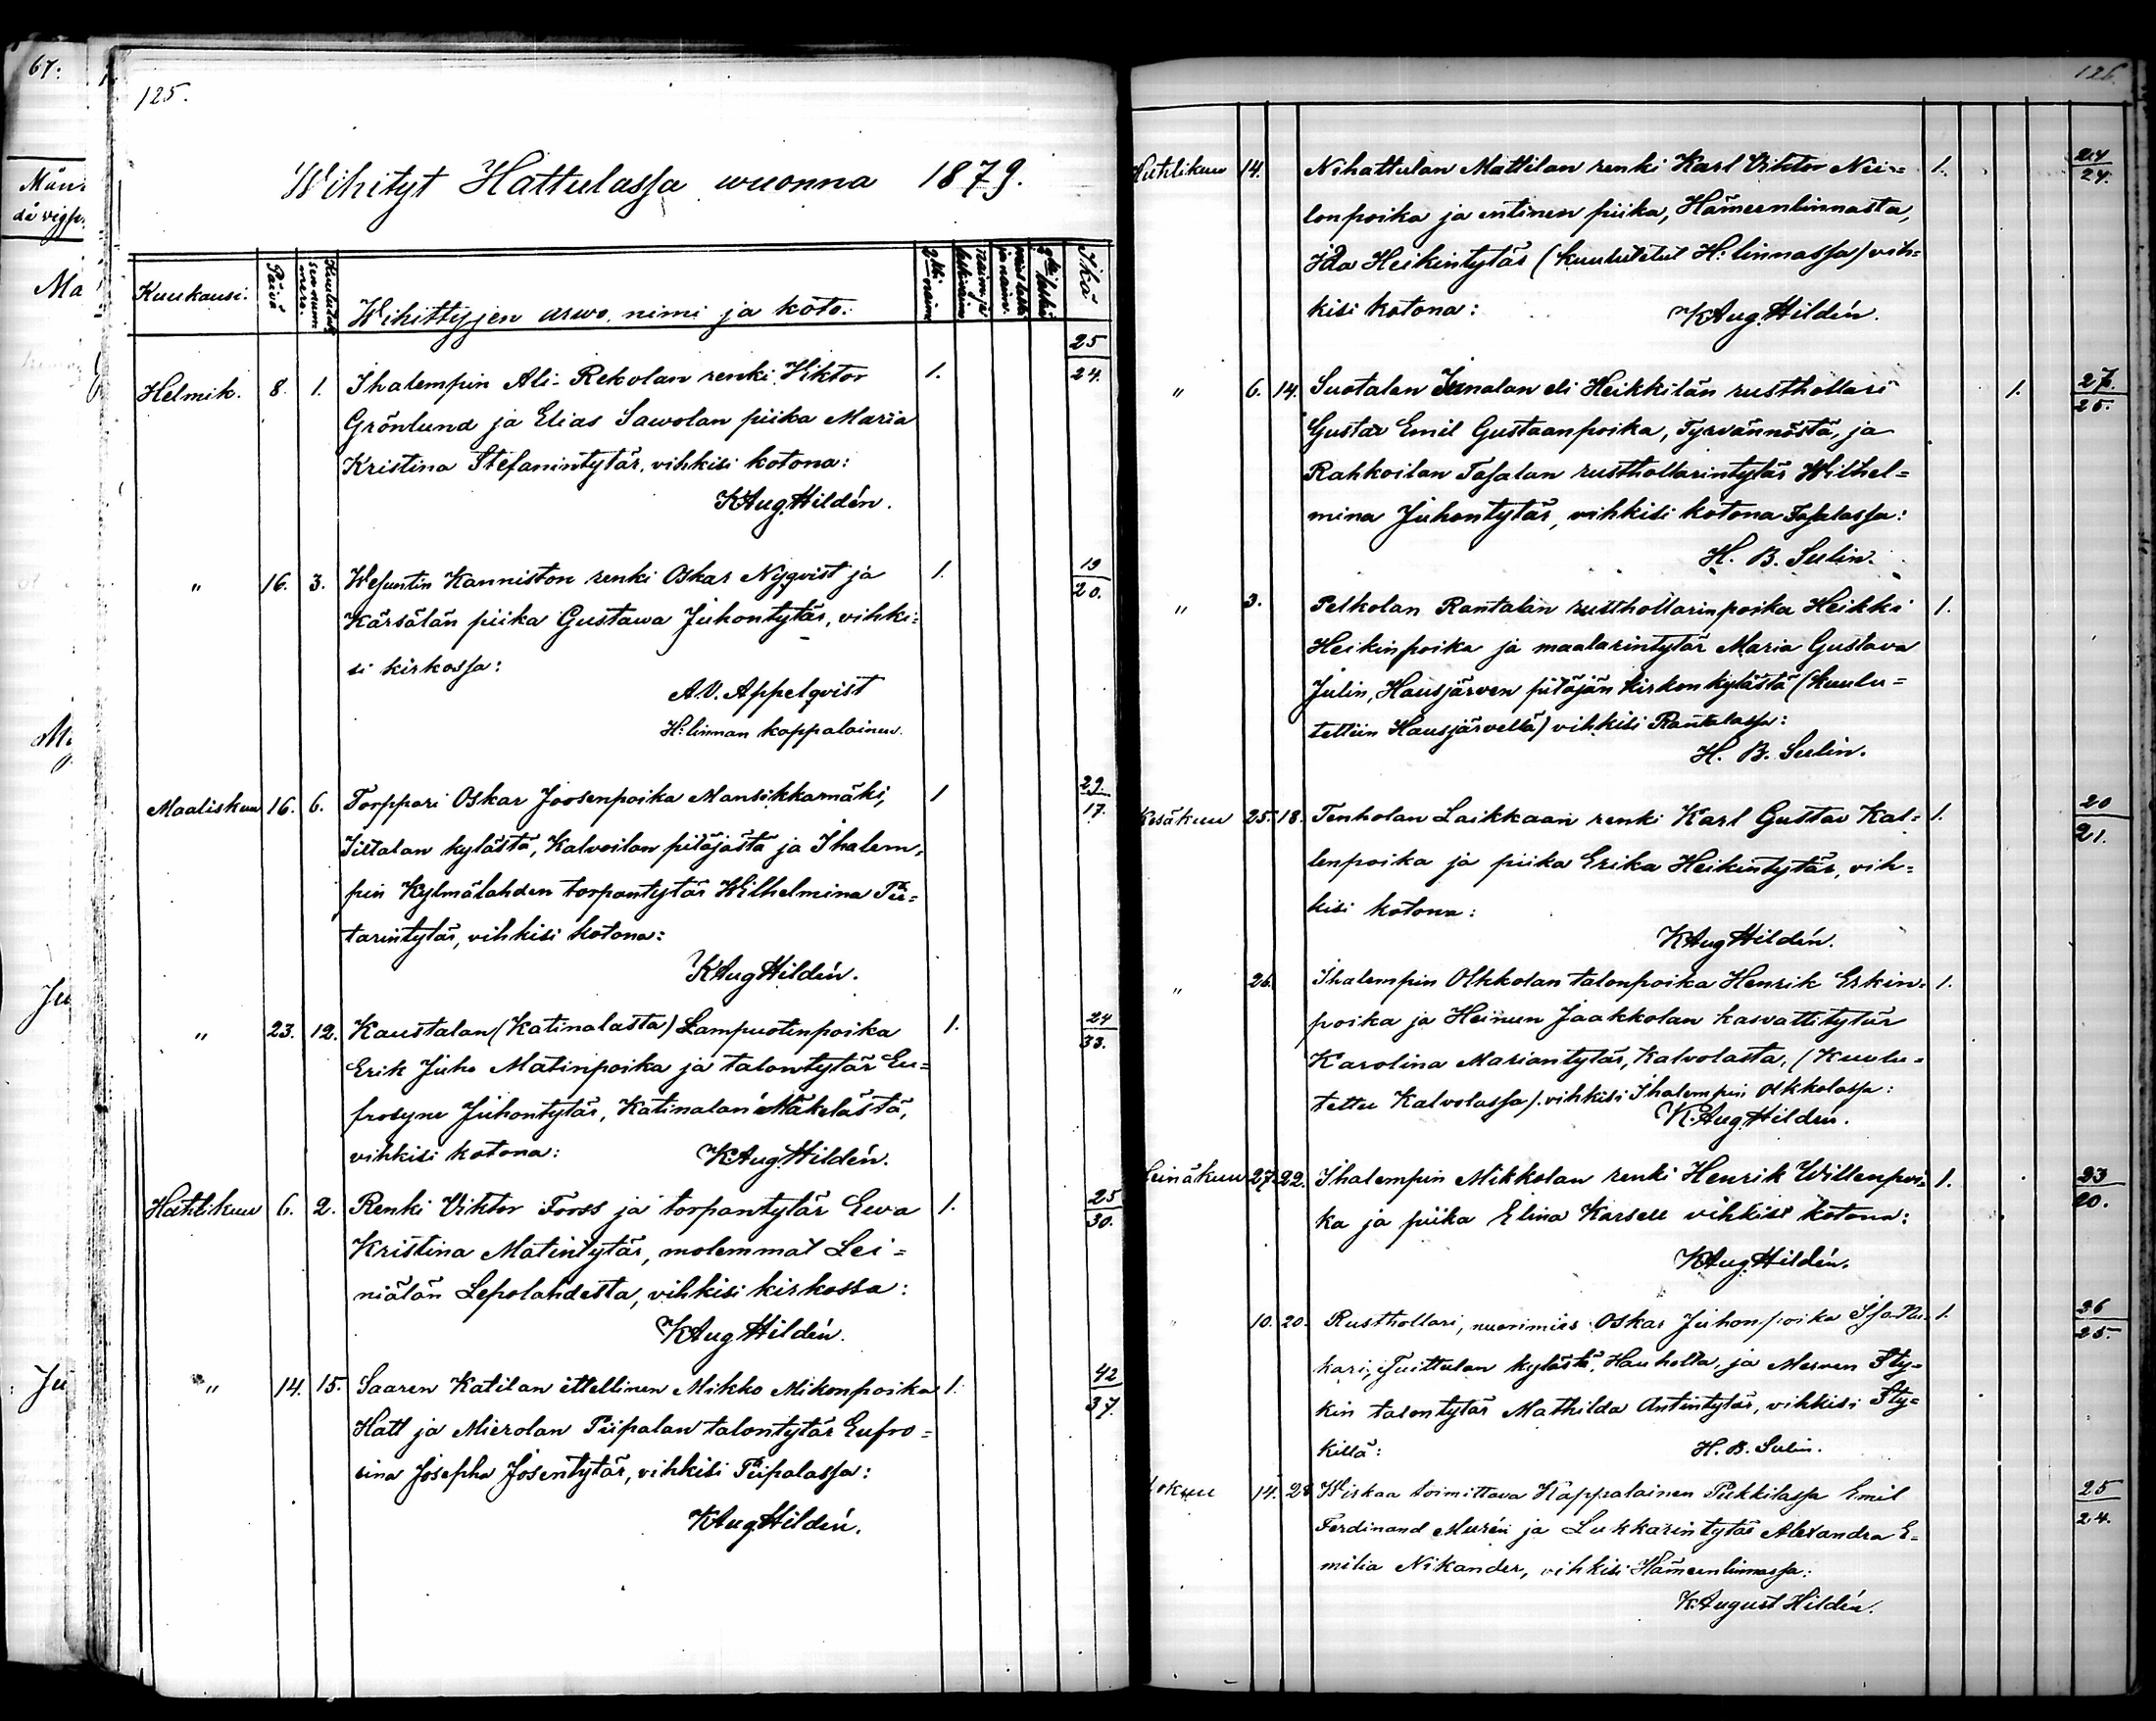 67.
125.
Wihityt Hattulassa wuonna 1879.
Kuukausi. Päivä Kuulutuksen numero. Wihittyjen arwo, nimi ja koto. Ikä
Helmik. 8. 1. Ihalempin Ali-Rekolan renki Viktor 1. 25/24.
Grönlund ja Elias Sawolan piika Maria
Kristina Stefanintytär, vihkisi kotona:
K Aug. Hildén.
" 16. 3. Wesuntin Kanniston renki Oskar Nyqvist ja 1. 19/20.
Kärsälän piika Gustawa Juhontytär, vihki=
si kirkossa:
A.V. Appelqvist
H:linnan kappalainen.
Maaliskuu 16. 6. Torppari Oskar Joosenpoika Mansikkamäki, 1 29./17.
kylästä, Kalvoilan pitäjästä ja Ihalem=
pin Kylmälahden torpantytär Wilhelmina Pie=
tarintytär, vihkisi kotona:
K Aug Hildén.
" 23. 12. Kaustalan (Katinalasta) Lampuotinpoika 1. 24/33.
Erik Juho Matinpoika ja talontytär Eu=
frosyne Juhontytär, Katinalan Mäkelästä,
vihkisi kotona: K Aug. Hildén.
Huhtikuu 6. 2. Renki Viktor Forss ja torpantytär Ewa 1. 25/30.
Kristina Matintytär, molemmat Lei=
niälän Lepolahdesta, vihkisi kirkossa:
K Aug Hildén.
" 14. 15. Saaren Katilan ittellinen Mikko Mikonpoika 1. 42/37.
Hatt ja Mierolan Piipalan talontytär Eufro=
sina Josepha Josentytär, vihkisi Piipalassa:
K Aug Hildén.
126.
Huhtikuu 14. Nihattulan Mattilan renki Karl Viktor Nii= 1. 24/24.
lonpoika ja entinen piika, Hämeenlinnasta,
Ida Heikintytär (kuulutetut H:linnassa) vih=
kisi kotona: K Aug. Hildén.
" 6. 14. Suotalan Junalan eli Heikkilän rusthollari 1. 27./25.
Gustav Emil Gustaanpoika, Tyrvännöstä, ja
Rahkoilan Tasalan rusthollarintytär Wilhel=
mina Juhontytär, vihkisi kotona Tasalassa:
H. B. Sulin.
" 3. Pelkolan Rantalan rusthollarinpoika Heikki 1.
Heikinpoika ja maalarintytär Maria Gustava
Julin, Hausjärven pitäjän kirkonkylästä (Kuulu=
tettiin Hausjärvellä) vihkisi Rantalassa:
H. B. Sulin.
Kesäkuu 25. 18. Tenholan Laikkaan renki Karl Gustav Kal= 1. 20/21.
lenpoika ja piika Erika Heikintytär, vih=
kisi kotona:
K Aug Hildén.
" 26. Ihalempin Olkkolan talonpoika Henrik Erkin= 1.
poika ja Heinun Jaakkolan kasvattitytär
Karolina Mariantytär, Kalvolasta, (Kuulu=
tettu Kalvolassa). vihkisi Ihalempin Olkkolassa:
K. Aug. Hildén.
Heinäkuu 27. 22. Ihalempin Mikkolan renki Henrik Willenpoi= 1. 23/20.
ka ja piika Elina Karsell vihkisi kotona:
K Aug. Hildén.
" 10. 20. Rusthollari, nuorimies Oskar Juhonpoika 1. 26/25.
kari, Tuittulan kylästä, Hauholta, ja Merven Sty=
kin talontytär Mathilda Antintytär, vihkisi Sty=
killä: H. B. Sulin.
Lokuu 14. 28 Wirkaa toimittava Kappalainen Pukkilassa Emil 25/24.
Ferdinand Murén ja Lukkarintytär Alexandra E=
milia Nikander, vihkisi Hämeenlinnassa:
K. August Hildén.